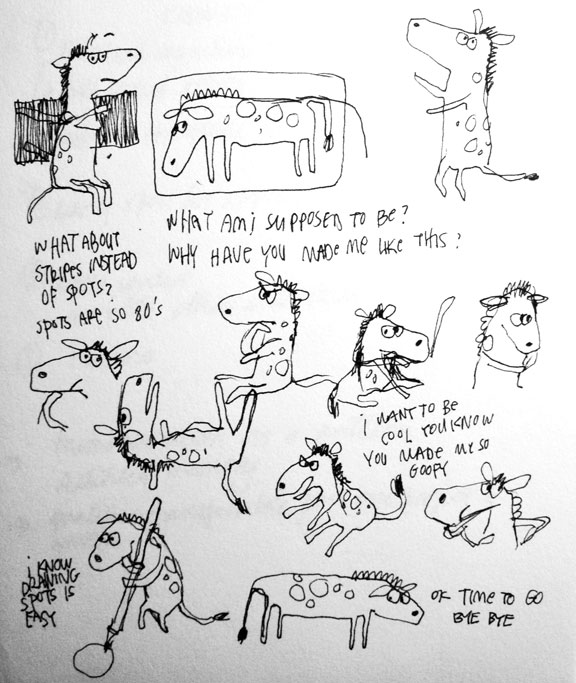 WHAT ABOUT
STRIPES INSTEAD
OF SPOTS?
SPOTS ARE SO 80's
WHAT AM i SUPPOSED TO BE?
WHY HAVE YOU MADE ME LIKE THIS?
i WANT TO BE
COOL YOU KNOW
YOU MADE ME SO
GOOFY
i KNOW
DRAWING
SPOTS IS
EASY
OK TIME TO GO
BYE BYE